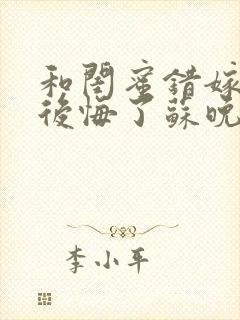 和閨蜜錯嫁
後悔了蘇晚
李小平